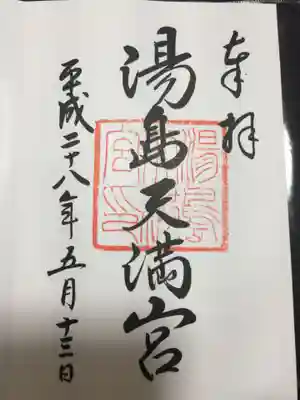 奉拝
湯島天満宮
平成二十八年五月十三日